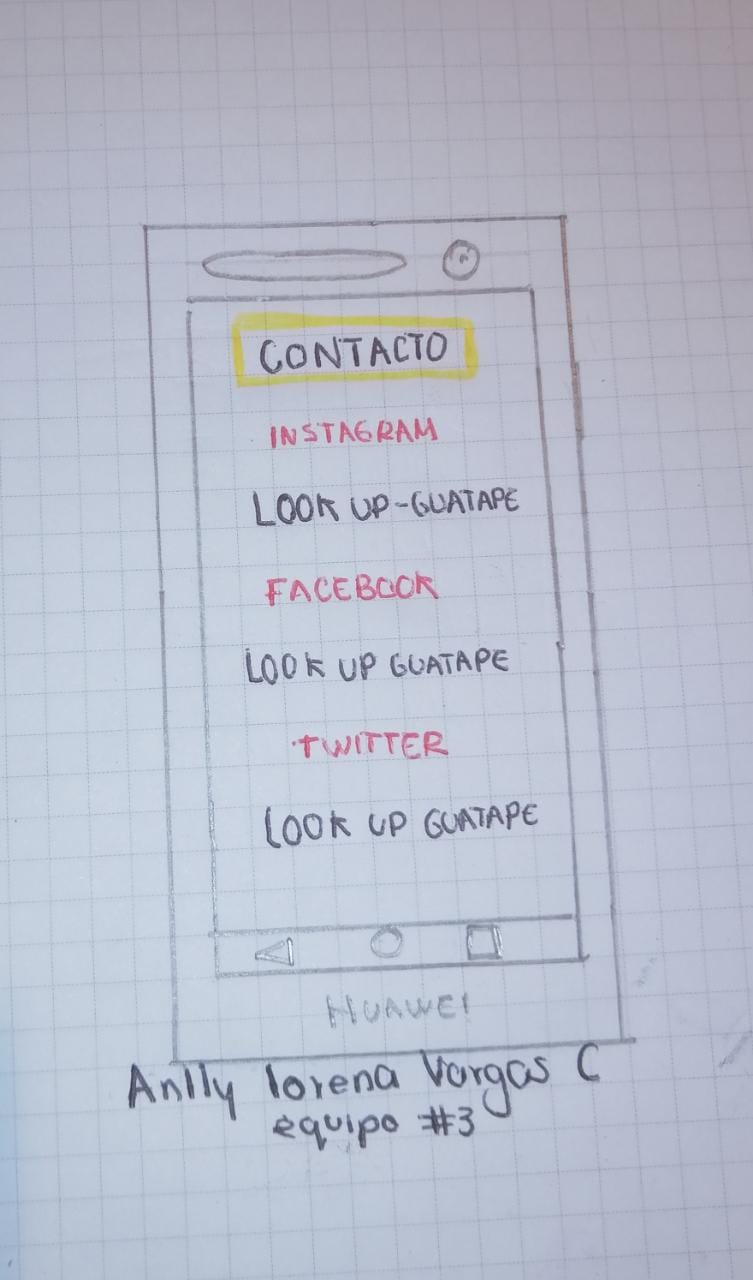 CONTACTO
INSTAGRAM
LOOK UP-GUATAPE
FACEBOOK
LOOK UP GUATAPE
TWITTER
LOOK UP GUATAPE
HUAWEI
Anlly lorena Vargas C
equipo #3